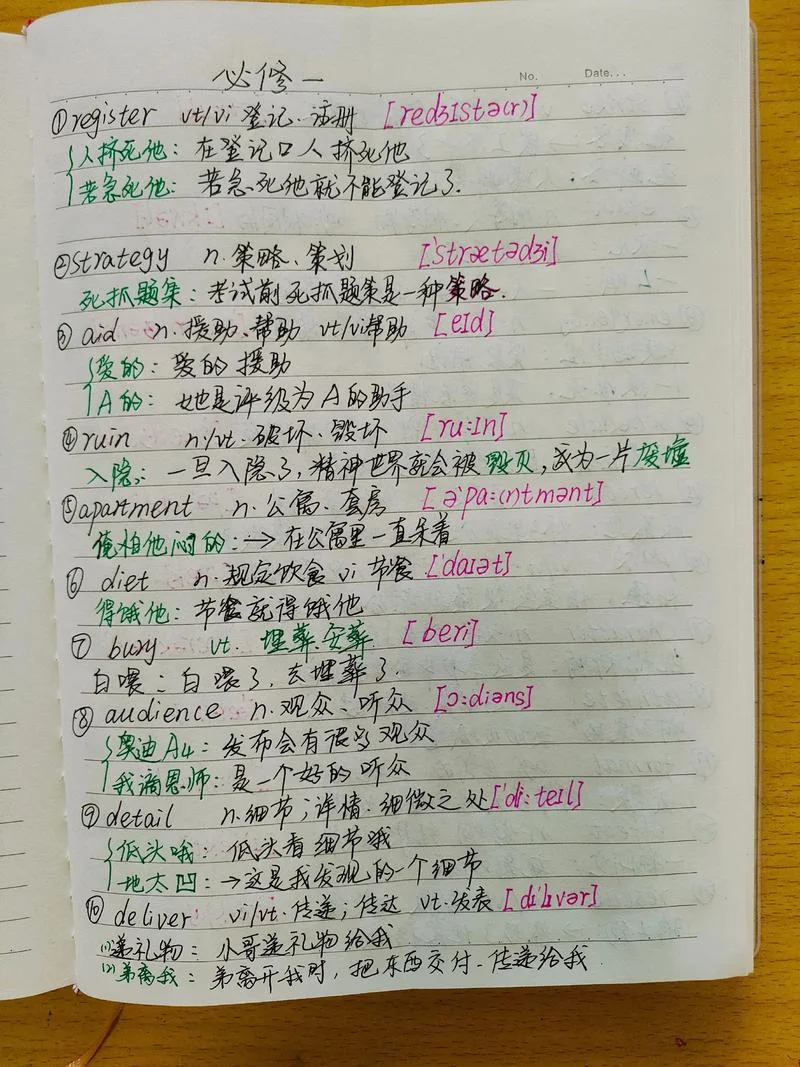 必修一
No. Date...
①register vt/vi 登记、注册 [redʒɪstə(r)]
人挤死他：在登记口人挤死他
若急死他：若急死他就不能登记了.
②strategy n.策略、策划 ['strætədʒi]
死抓题集：考试前死抓题集是一种策略.
③ aid n.援助、帮助 vt/vi帮助 [eɪd]
爱的：爱的援助
A的：她是评级为A的助手
④ruin n/vt.破坏、毁坏 [ru:ɪn]
入隐：一旦入隐了,精神世界就会被毁灭,成为一片废墟
⑤apartment n.公寓、套房 [ə'pa:(r)tmənt]
俺怕他闷的：→在公寓里一直呆着
⑥ diet n.规定饮食 vi 节食 ['daɪət]
得饿他：节食就得饿他
⑦ bury vt. 埋葬、安葬 [beri]
白喂：白喂了,去埋葬了.
⑧ audience n.观众、听众 [ɔ:diəns]
奥迪A4：发布会有很多观众
我谪恩师：是一个好的听众
⑨detail n.细节;详情.细微之处['di:teɪl]
低头哦：低头看细节哦
地太凹：→这是我发现的一个细节
⑩ deliver vi/vt.传递;传达 vt.发表 [dɪ'lɪvər]
(1)递礼物：小哥递礼物给我
(2)弟离我：弟离开我时,把东西交付、传递给我.